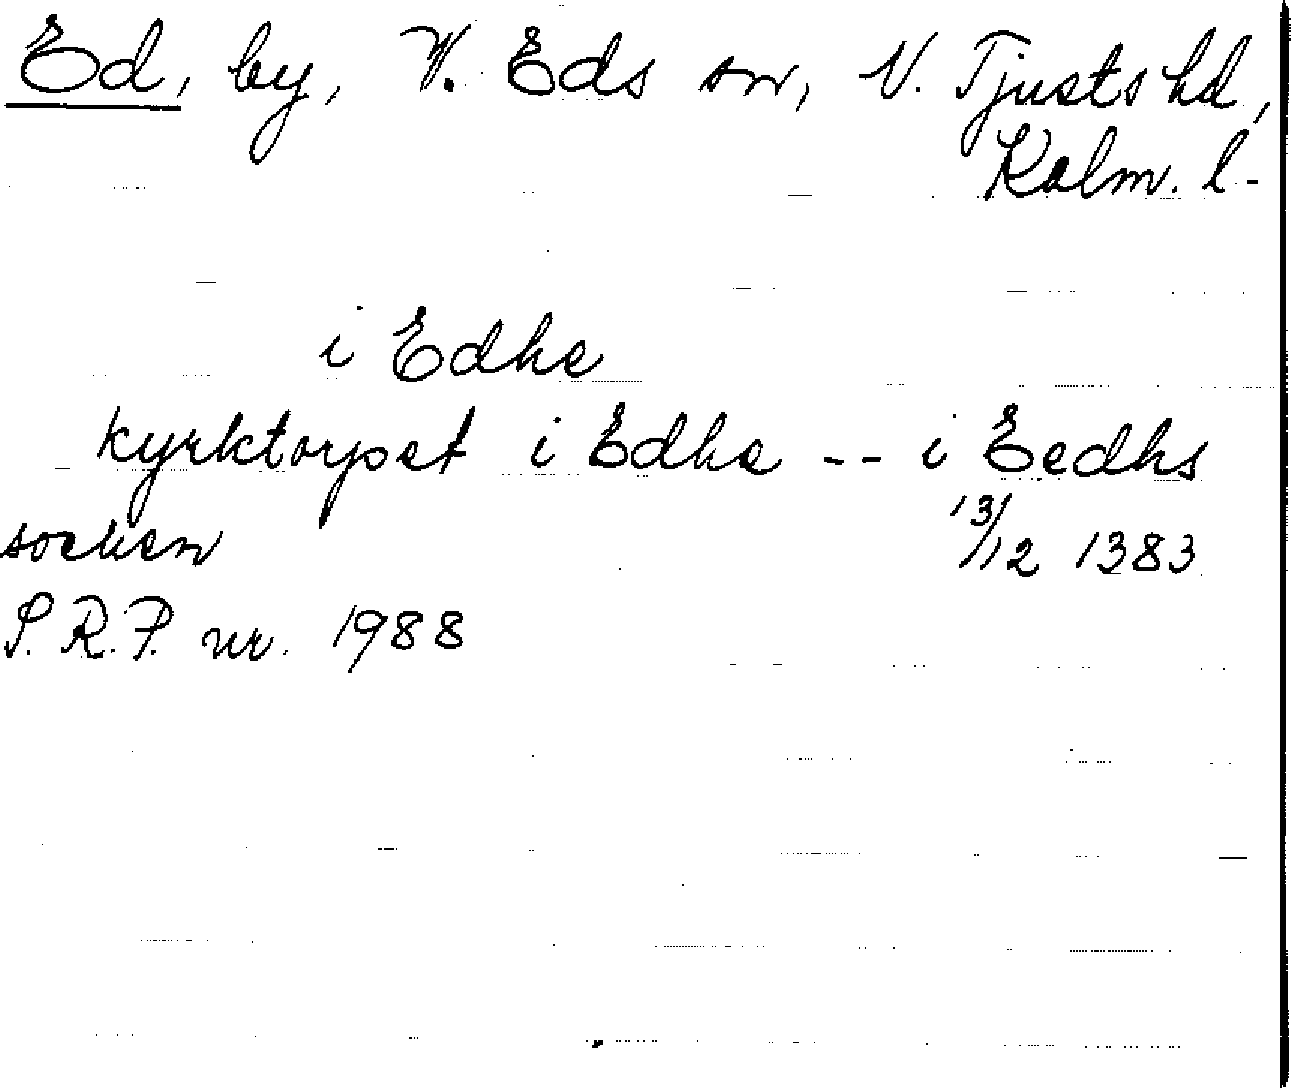 Ed, by, V. Eds sn, N. Tjusts hd,
Kalm. l.
i Edhe
kyrktorpet i Edhe -- i Eedhs
socken 13/12 1383
S.R.P. nr. 1988